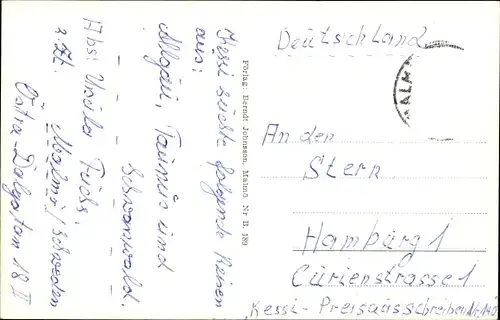 Kessi suchte folgende Reisen
aus:
Allgäu, Taunus und
Schwarzwald.
Abs: Ursula Fuchs
z. Zt. Malmö / Schweden
Östra-Dalgatan 18 II
Förlag: Berndt Johnsson, Malmö Nr B. 189
Deutschland
MALM
An den
Stern
Hamburg 1
Curienstrasse 1
"Kessi-Preisausschreiben Nr. 140